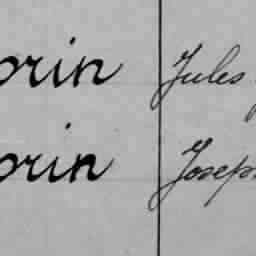 orin Jules
orin Joseph